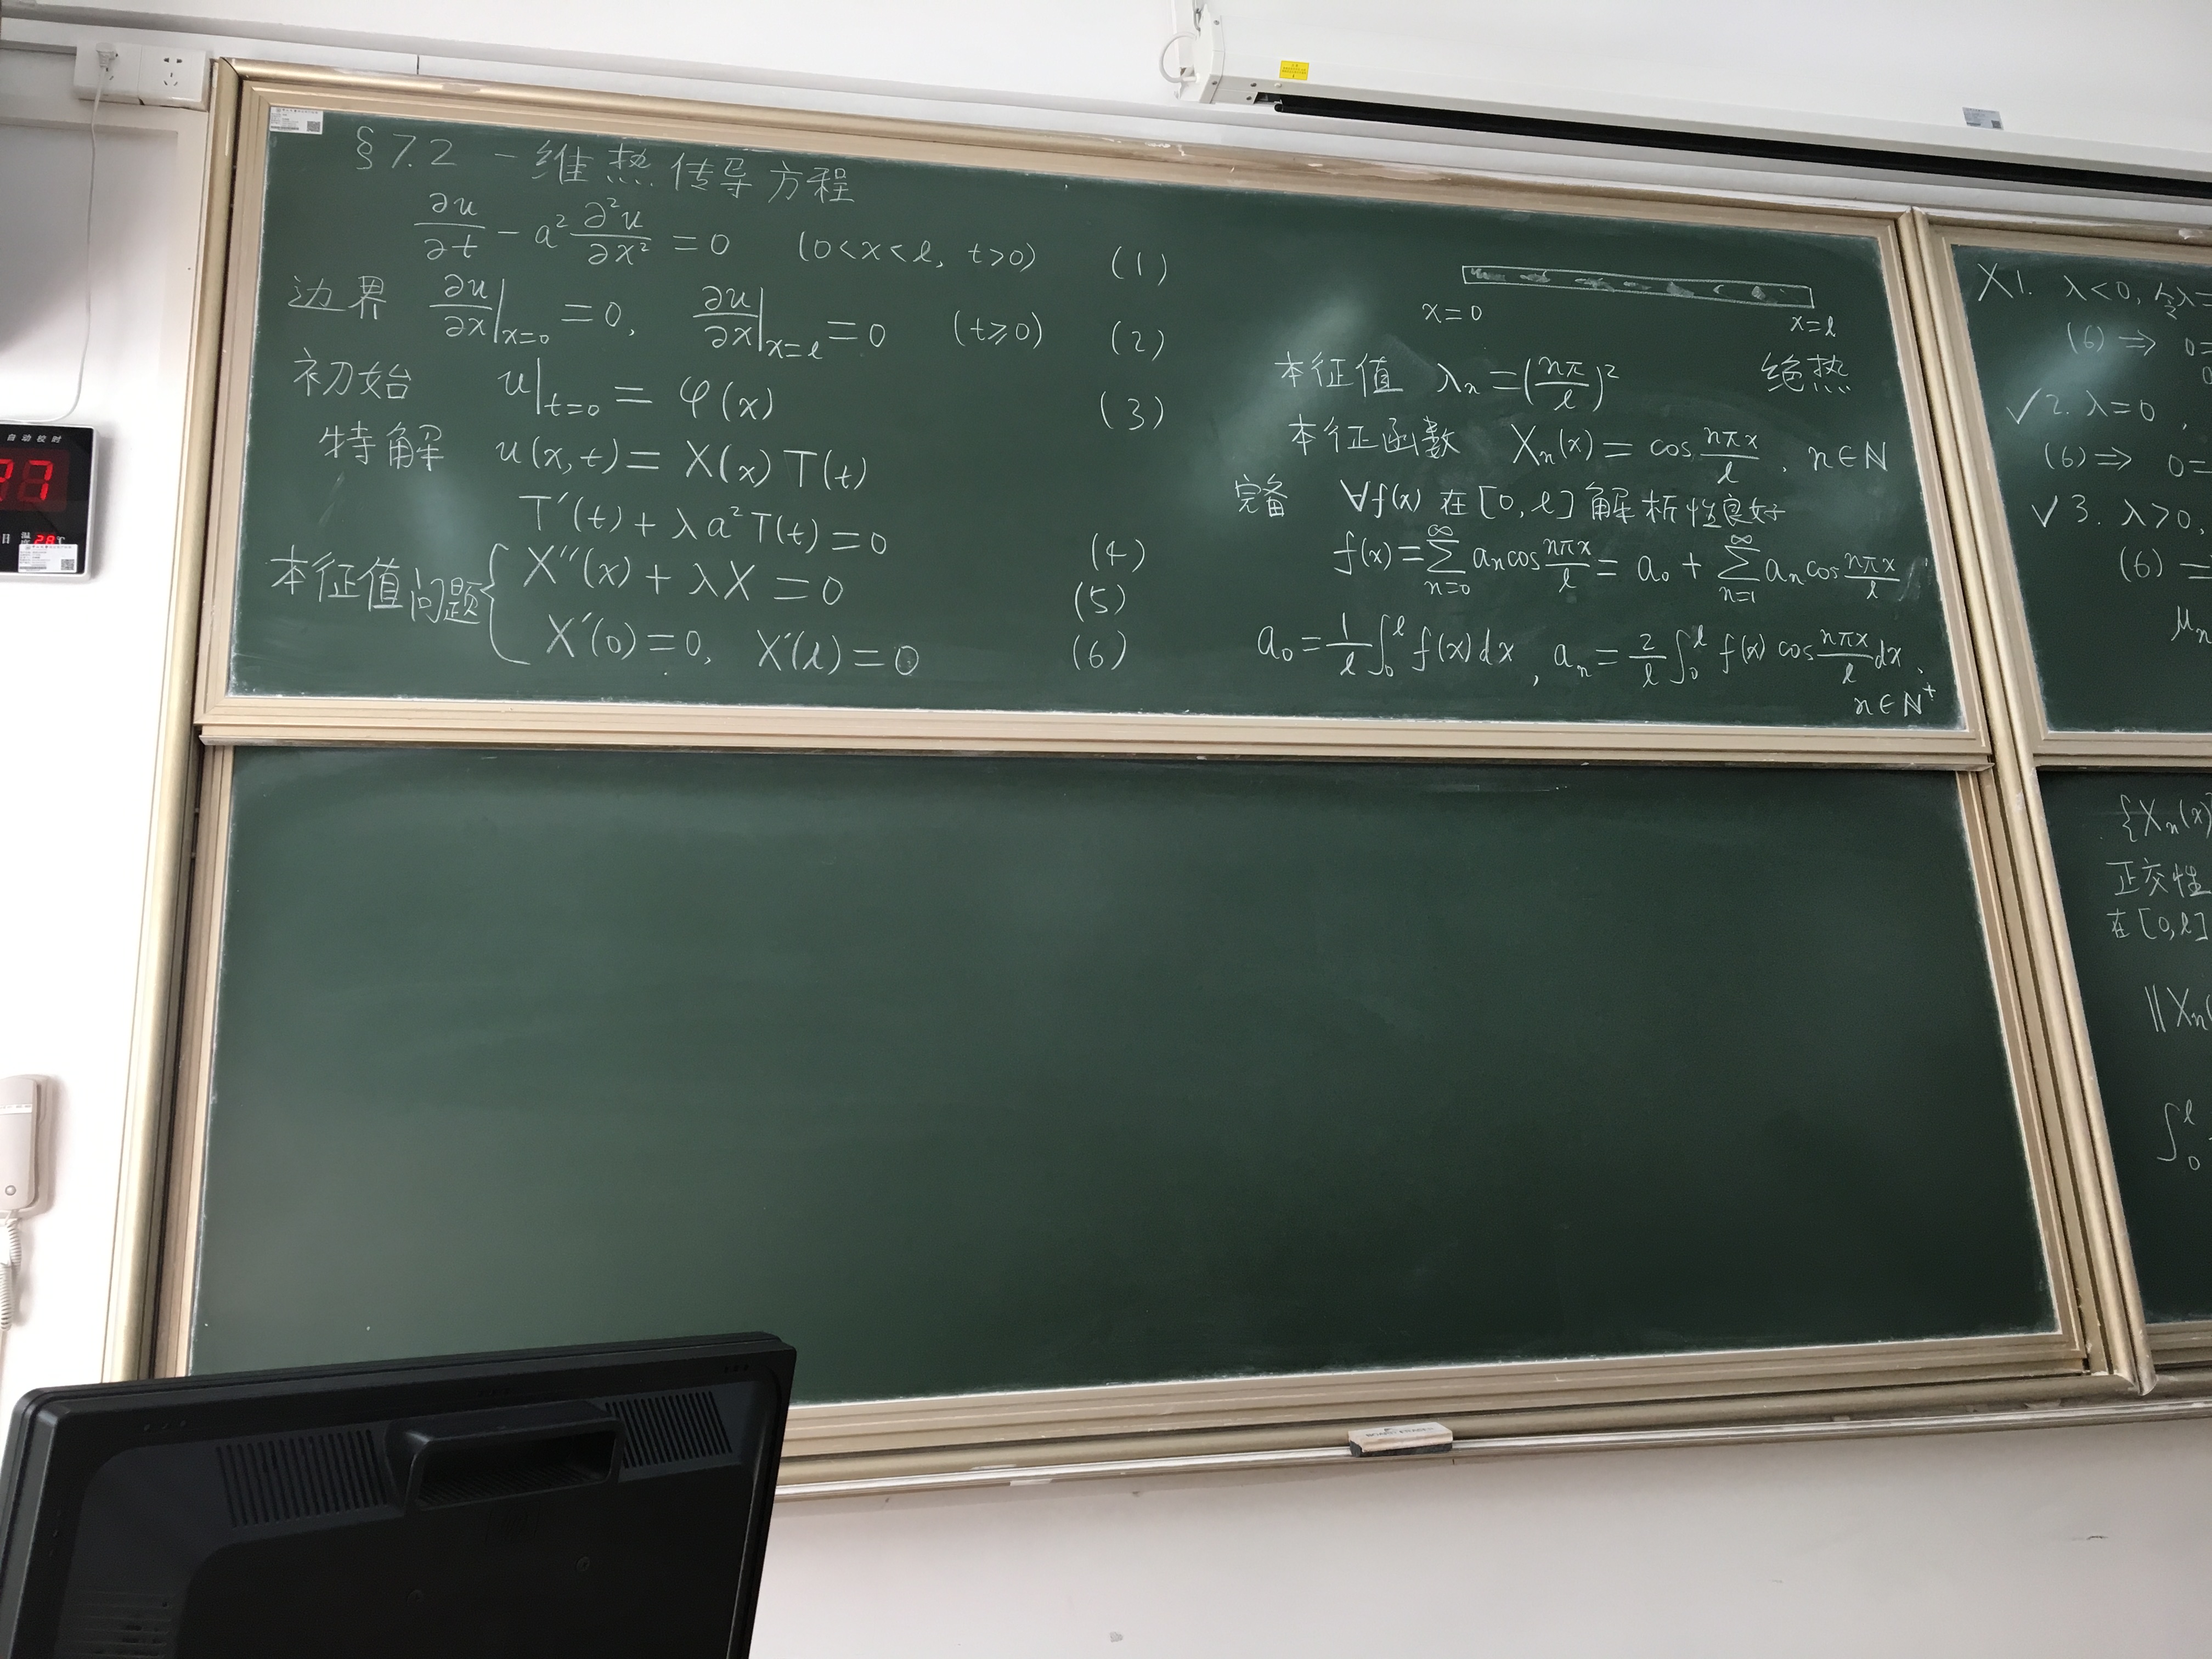 §7.2 一维热传导方程
∂u/∂t − a² ∂²u/∂x² = 0 (0<x<l, t>0) (1)
边界 ∂u/∂x|x=0 = 0, ∂u/∂x|x=l = 0 (t≥0) (2)
初始 u|t=0 = φ(x) (3)
特解 u(x,t) = X(x)T(t)
T′(t) + λa²T(t) = 0 (4)
本征值问题 { X″(x) + λX = 0 (5)
X′(0) = 0, X′(l) = 0 (6)
x=0 x=l
绝热
本征值 λₙ = (nπ/l)²
本征函数 Xₙ(x) = cos nπx/l, n∈N
完备 ∀f(x) 在 [0, l] 解析性良好
f(x) = ∑_{n=0}^{∞} aₙ cos nπx/l = a₀ + ∑_{n=1}^{∞} aₙ cos nπx/l
a₀ = 1/l ∫₀ˡ f(x)dx, aₙ = 2/l ∫₀ˡ f(x) cos nπx/l dx,
n∈N⁺
X1. λ<0, 令λ=
(6) ⇒ 0=
✓2. λ=0,
(6) ⇒ 0=
✓3. λ>0,
(6) =
μₙ
{Xₙ(x)
正交性
在[0,l]
‖Xₙ(
∫₀ˡ
自动校时
27
日 温度 28 ℃